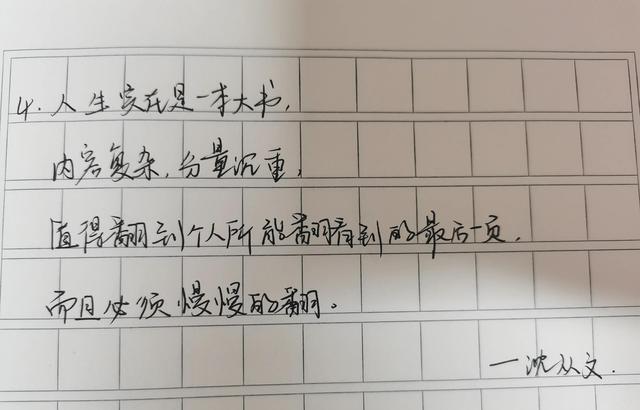 4. 人生实在是一本大书,
内容复杂,分量沉重,
值得翻到个人所能翻看到的最后一页,
而且必须慢慢的翻。
—沈从文.